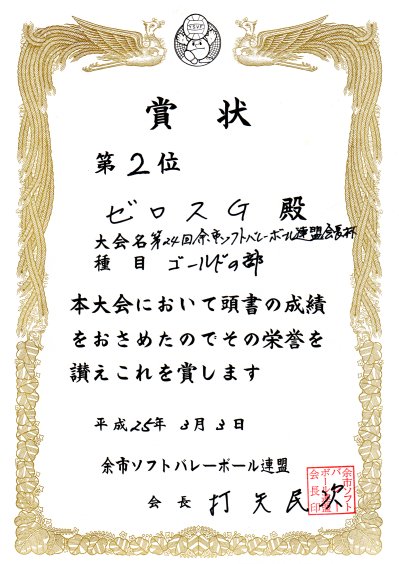 賞状
第2位
ゼロスG 殿
大会名 第24回余市ソフトバレーボール連盟会長杯
種目 ゴールドの部
本大会において頭書の成績
をおさめたのでその栄誉を
讃えこれを賞します
平成25年 3月3日
余市ソフトバレーボール連盟
会長 打矢民次